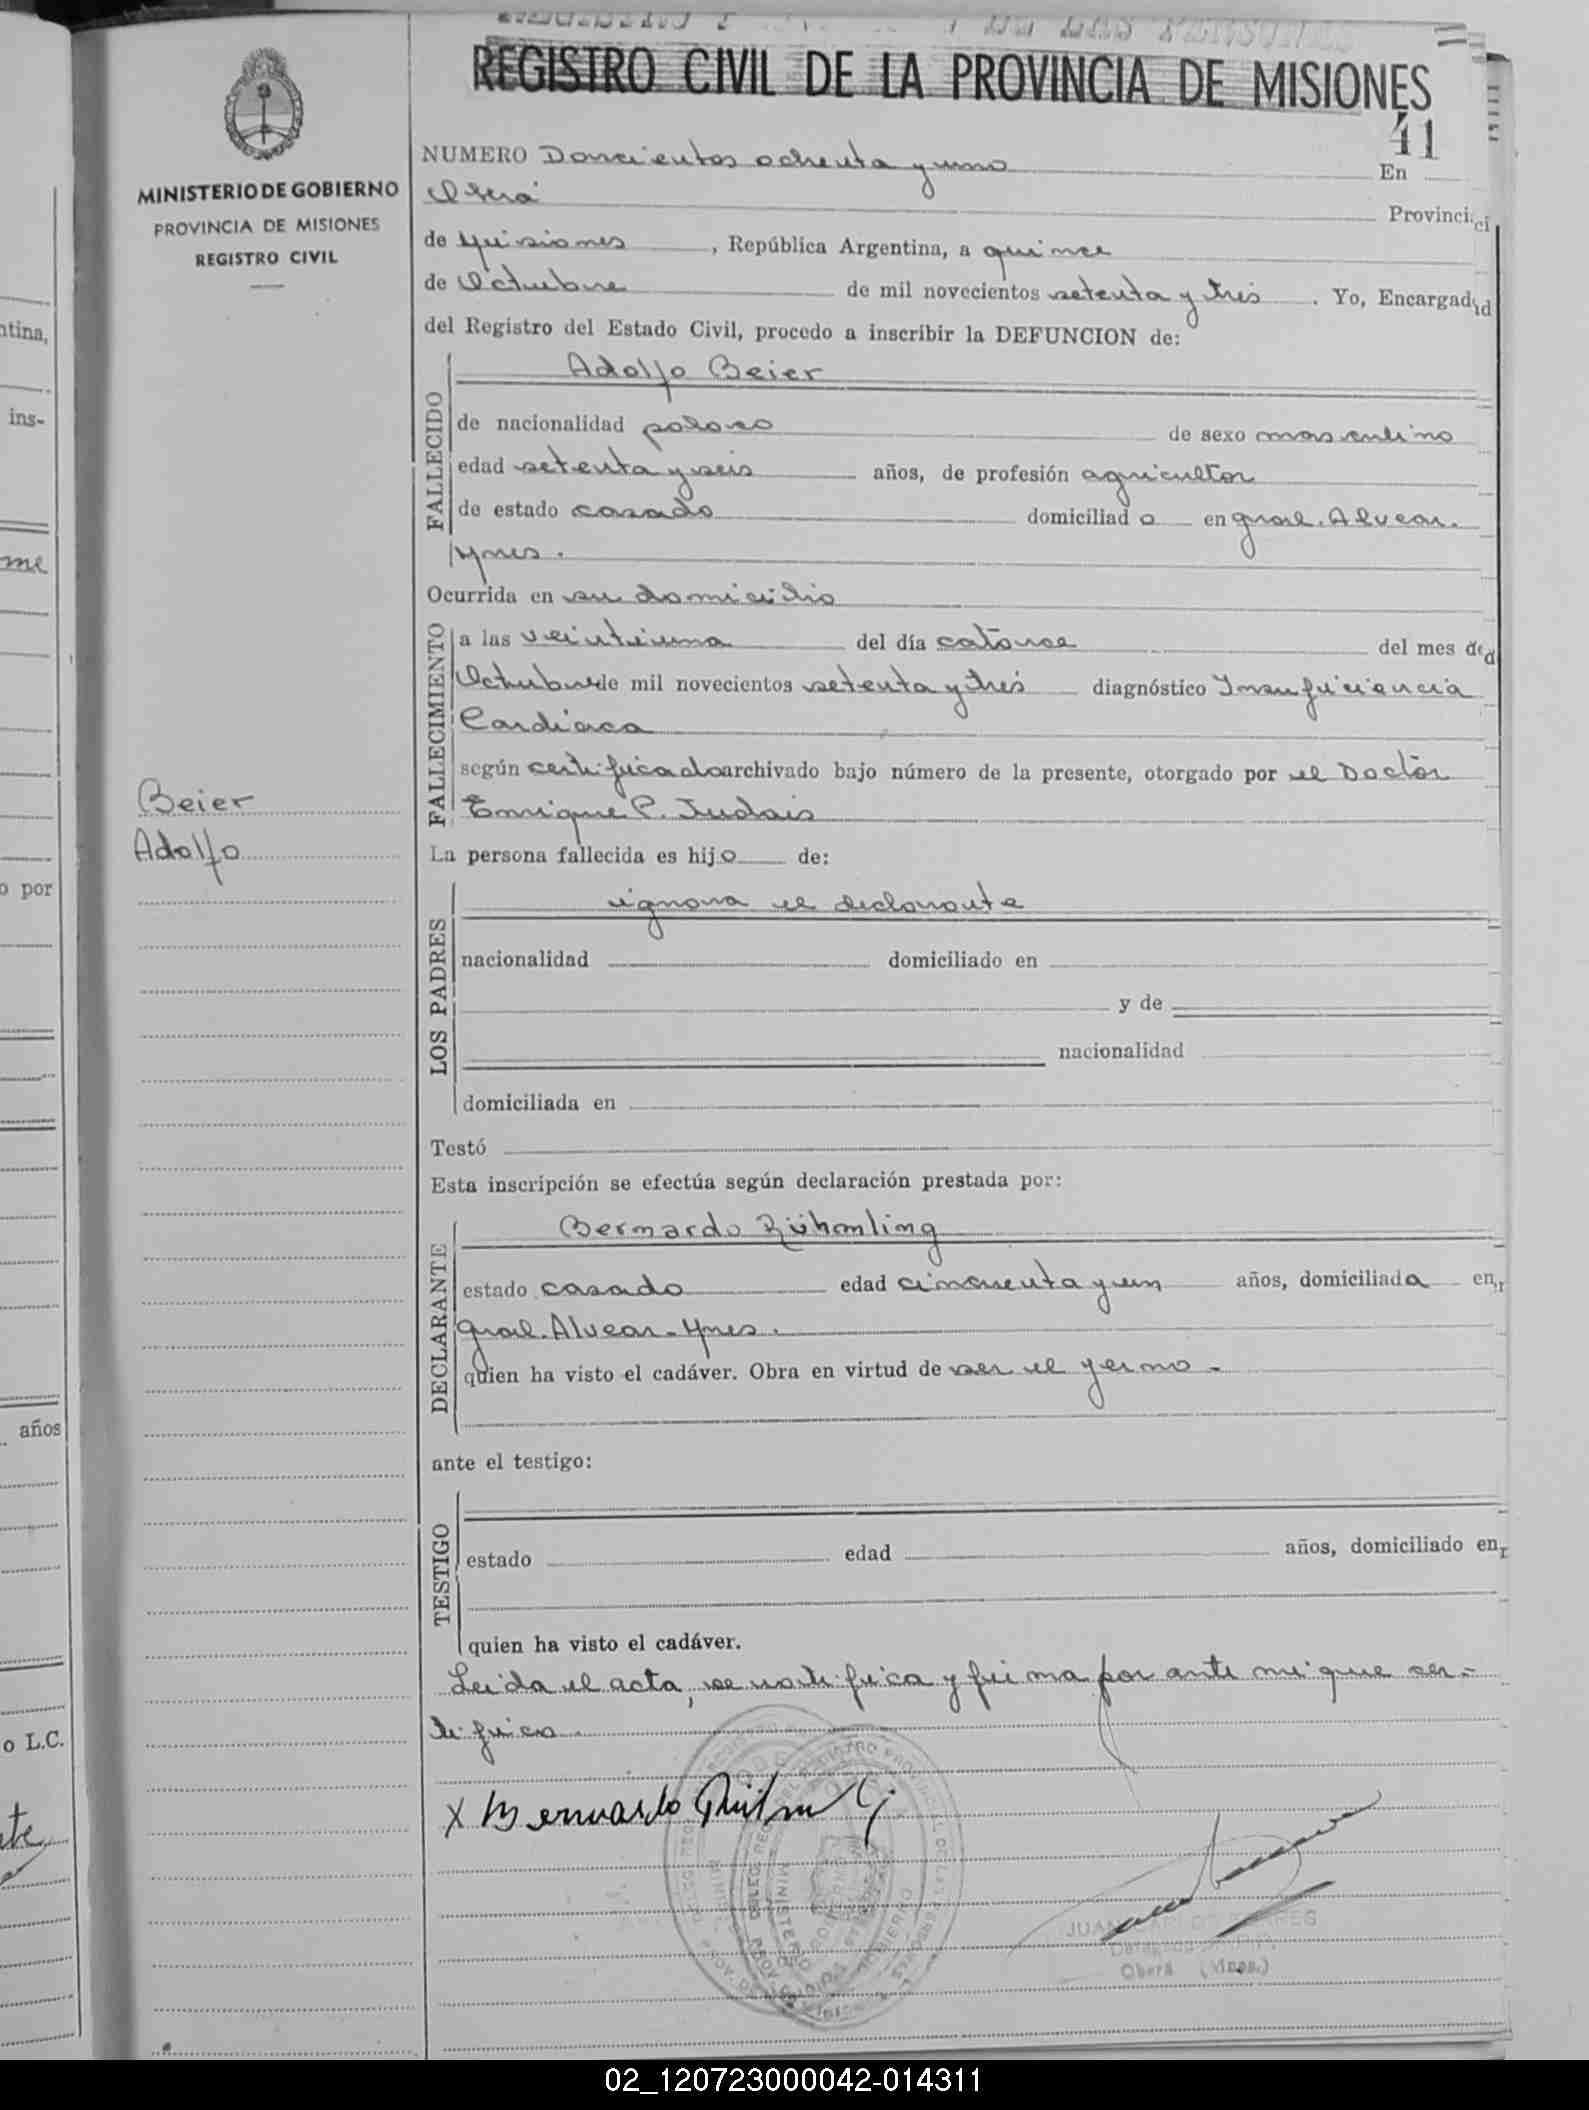 REGISTRO CIVIL DE LA PROVINCIA DE MISIONES
41
MINISTERIO DE GOBIERNO
PROVINCIA DE MISIONES
REGISTRO CIVIL
NUMERO Doscientos ochenta y uno En
Oberá Provinci
de Misiones, República Argentina, a quince
de Octubre de mil novecientos setenta y tres. Yo, Encargad
del Registro del Estado Civil, procedo a inscribir la DEFUNCION de:
FALLECIDO
Adolfo Beier
de nacionalidad polaco de sexo masculino
edad setenta y seis años, de profesión agricultor
de estado casado domiciliado en Gral. Alvear.
Mnes.
Ocurrida en su domicilio
FALLECIMIENTO
a las veintiuna del día catorce del mes de
Octubre de mil novecientos setenta y tres diagnóstico Insuficiencia
Cardiaca
según certificado archivado bajo número de la presente, otorgado por el Doctor
Enrique P.
Beier
Adolfo
La persona fallecida es hijo de:
LOS PADRES
ignora el declarante
nacionalidad domiciliado en
y de
nacionalidad
domiciliada en
Testó
Esta inscripción se efectúa según declaración prestada por:
DECLARANTE
Bernardo
estado casado edad cincuenta y un años, domiciliada en
Gral. Alvear - Mnes.
quien ha visto el cadáver. Obra en virtud de ser el yerno -
ante el testigo:
TESTIGO
estado edad años, domiciliado en
quien ha visto el cadáver.
Leida el acta, se ratifica y firma por ante mi que cer-
tifico.
X Bernardo
JUAN CARLOS
Oberá (Mnes.)
ntina,
ins-
me
o por
años
o L.C.
te
02_120723000042-014311